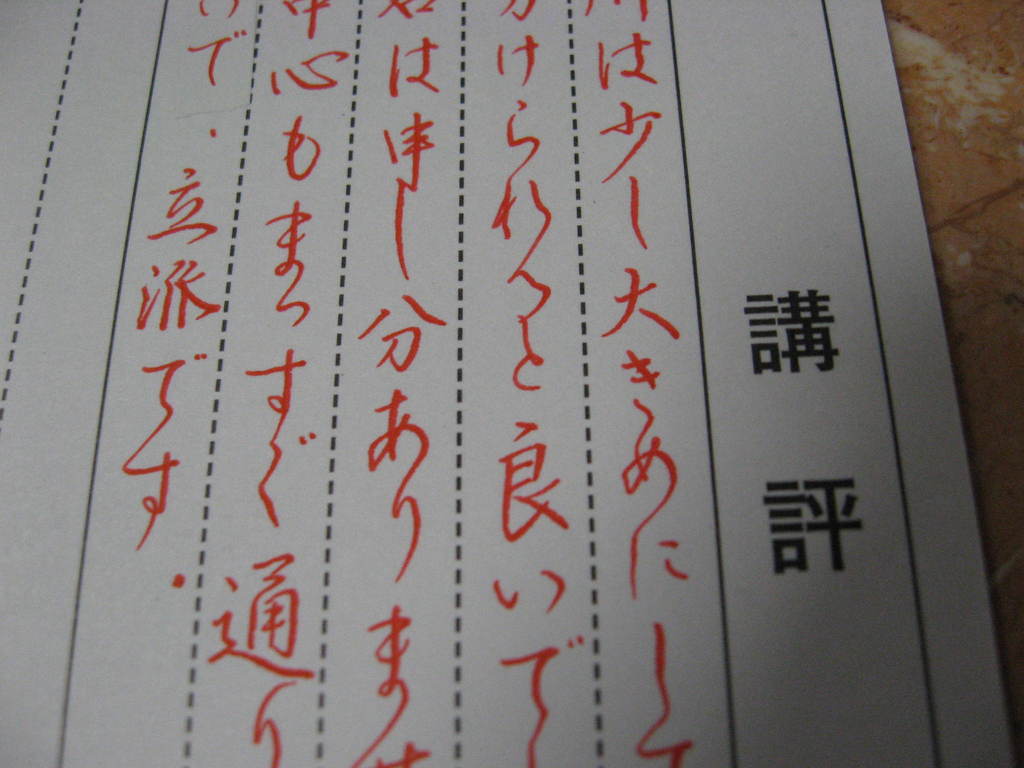 講評
は少し大きめにして
けられると良いで
は申し分ありませ
中心もまっすぐ通り
いで、立派です。